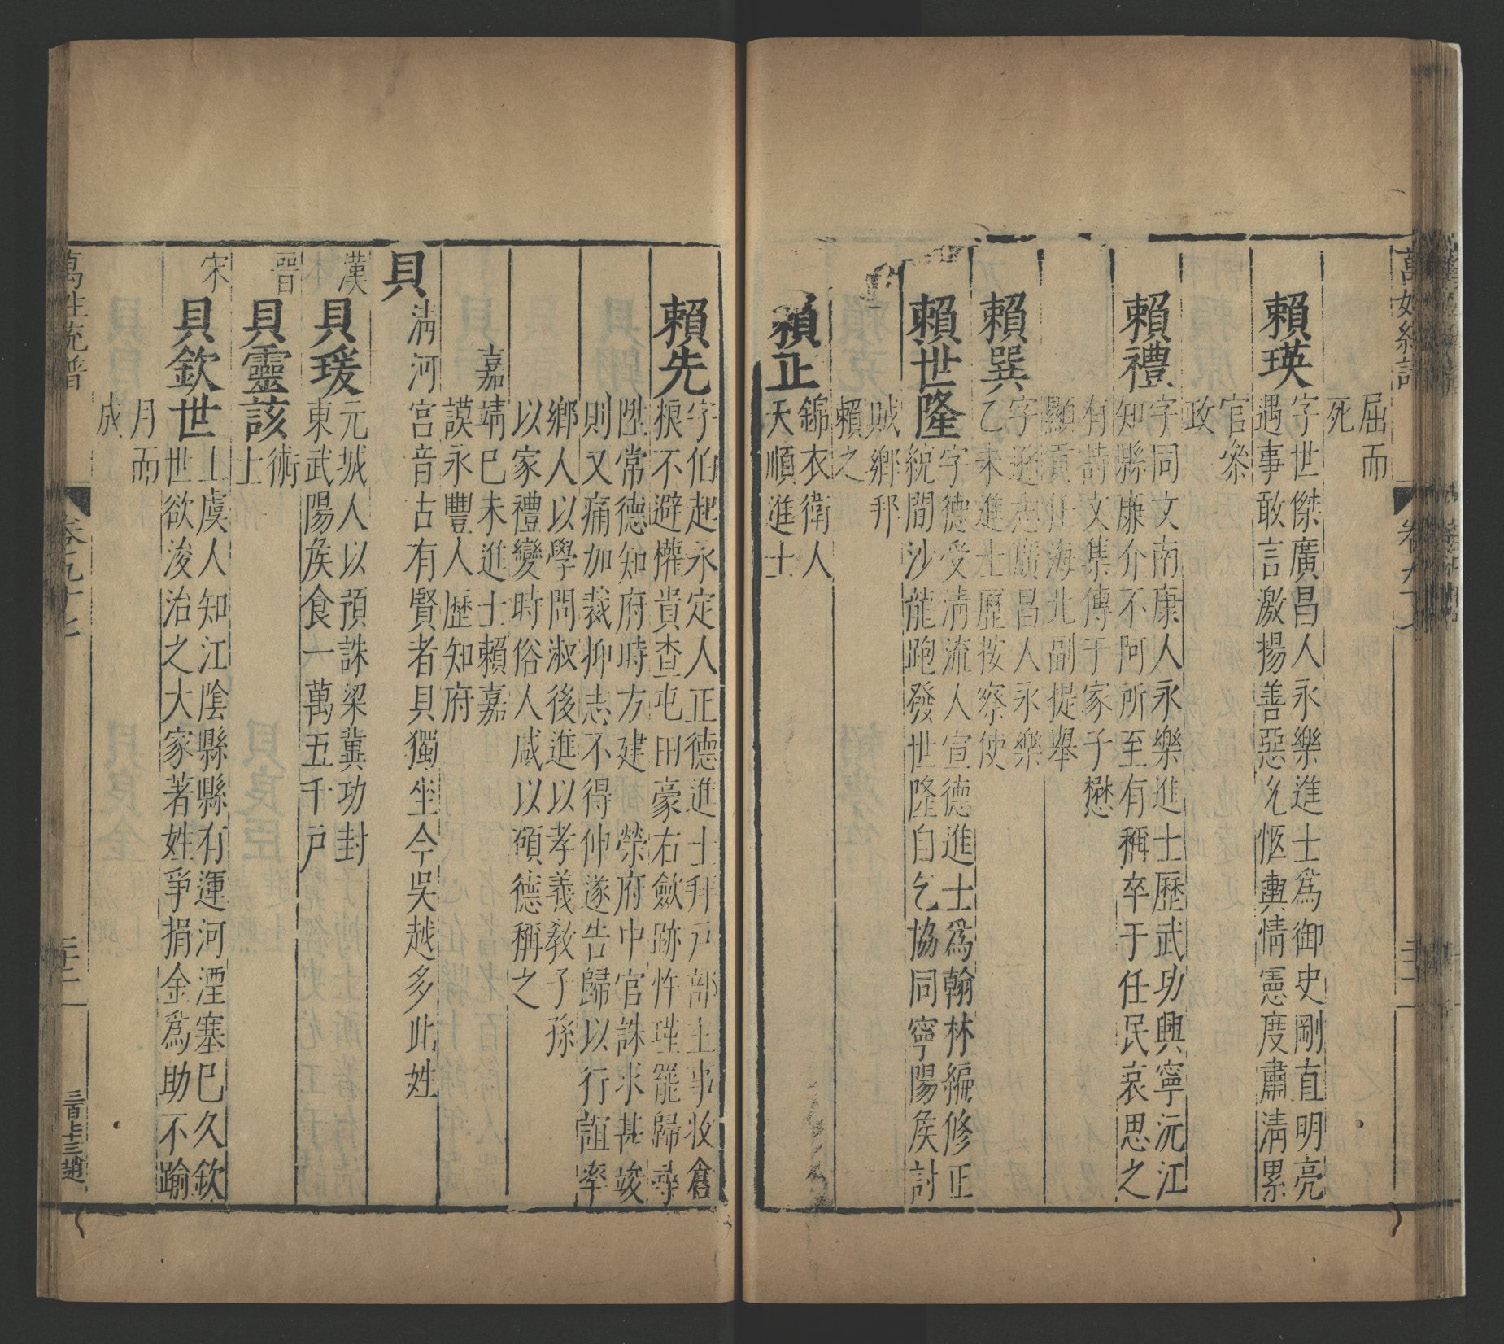 屈而
死
賴瑛
字世傑廣昌人永樂進士爲御史剛直明亮
遇事敢言激揚善惡允愜輿情憲度肅清累
官叅
政
賴禮
字同文南康人永樂進士歷武功興寧沅江
知縣廉介不阿所至有稱卒于任民哀思之
有詩文集傳于家子懋
顯貢任海北副提舉
賴巽
字遜志廣昌人永樂
乙未進士歷按察使
賴世隆
字德受清流人宣德進士爲翰林編修正
統間沙龍跑發世隆自乞協同寧陽矦討
賊鄉邦
賴之
賴正
錦衣衛人
天順進士
賴先
字伯起永定人正德進士拜戸部主事收倉
粮不避權貴查屯田豪右斂跡忤瑾罷歸尋
陞常德知府時方建 榮府中官誅求甚峻
則又痛加裁抑志不得伸遂告歸以行誼率
鄉人以學問淑後進以孝義敎子孫
以家禮變時俗人咸以碩德稱之
嘉靖巳未進士賴嘉
謨永豐人歷知府
貝
清河宫音古有賢者貝獨坐今吳越多此姓
漢
貝瑗
元城人以預誅梁冀功封
東武陽矦食一萬五千戸
晉
貝靈該
術
士
宋
貝欽世
上虞人知江陰縣縣有運河湮塞巳久欽
世欲浚治之大家著姓爭捐金爲助不踰
月而
成
萬姓統譜
卷之九十七
三十二